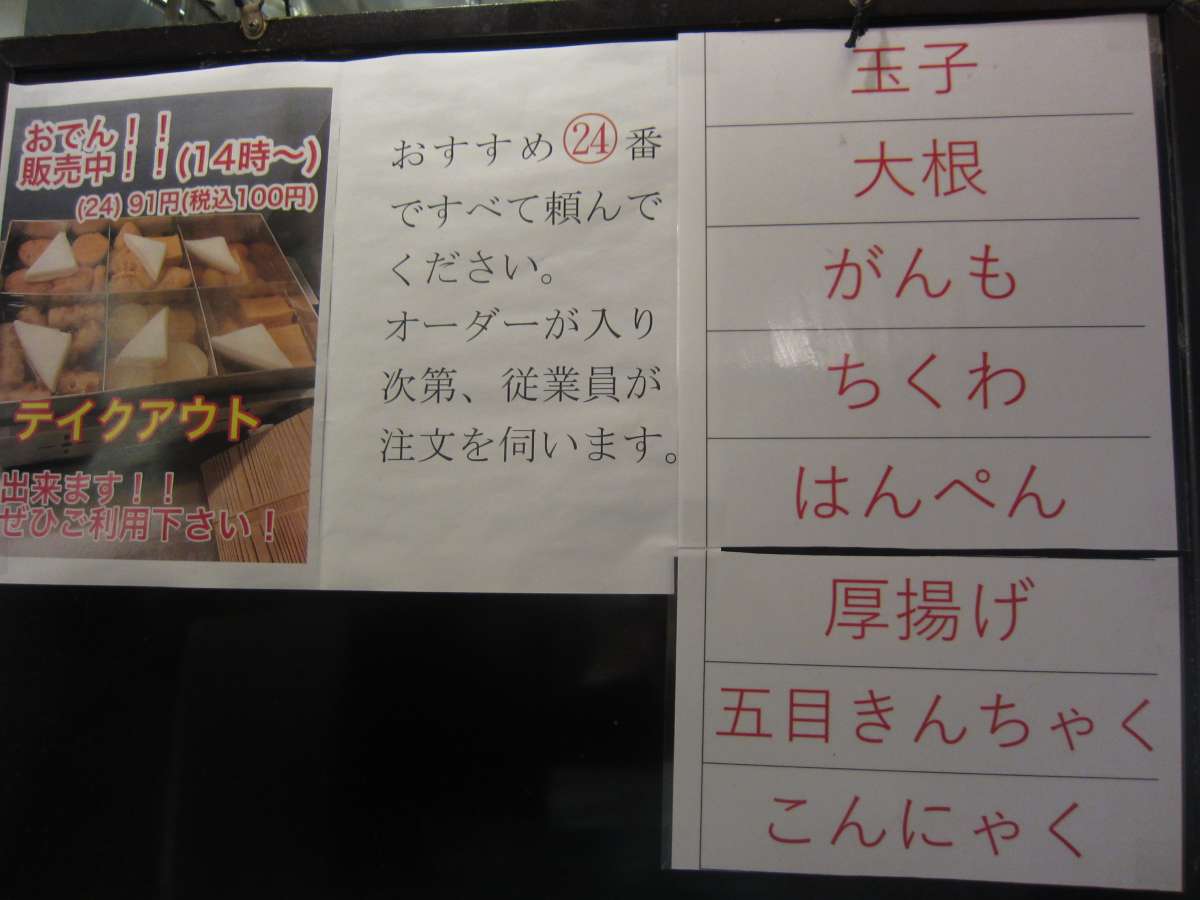 おでん！！
販売中！！(14時～)
(24) 91円(税込100円)
テイクアウト
出来ます！！
ぜひご利用下さい！
おすすめ㉔番
ですべて頼んで
ください。
オーダーが入り
次第、従業員が
注文を伺います。
玉子
大根
がんも
ちくわ
はんぺん
厚揚げ
五目きんちゃく
こんにゃく